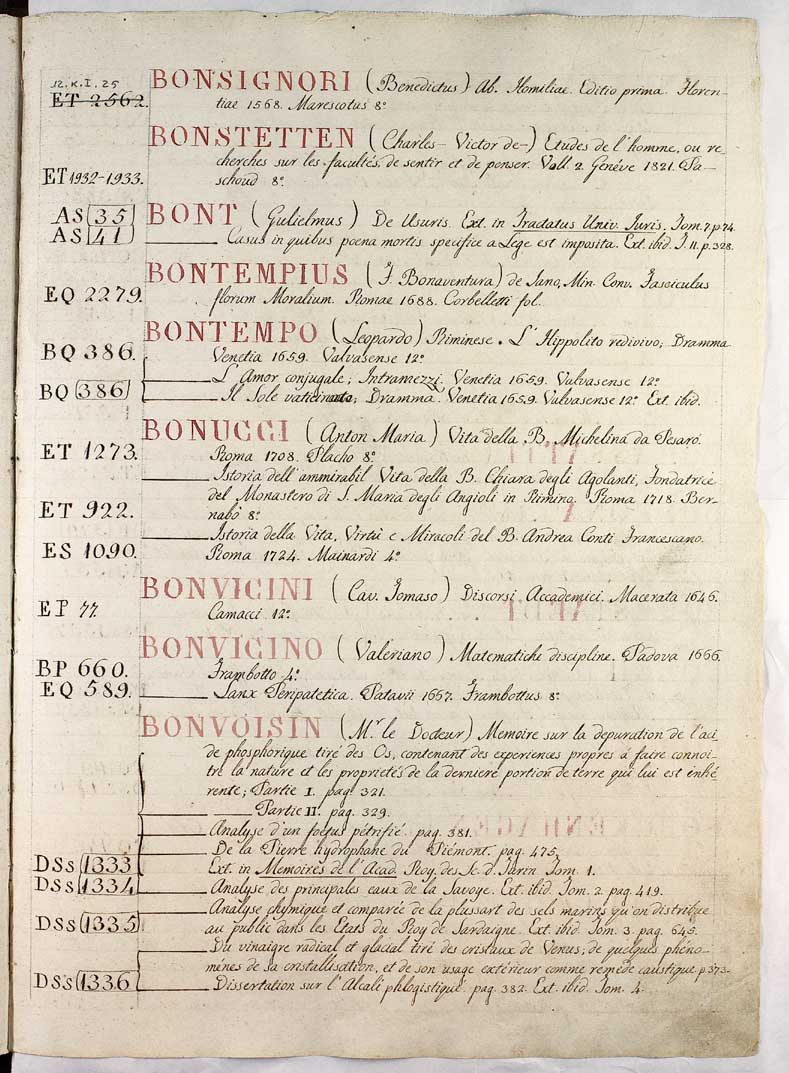 12. K. I. 25
ET 2562. BONSIGNORI (Benedictus) Ab. Homiliae. Editio prima. Floren-
tiae 1568. Marescotus 8º
BONSTETTEN (Charles- Victor de-) Etudes de l'homme, ou re-
cherches sur les facultés de sentir et de penser. Voll. 2. Genéve 1821. Pa-
ET 1932-1933. schoud 8º
AS 35 BONT (Gulielmus) De Usuris. Ext. in Tractatus Univ. Juris. Tom. 7. p. 74.
AS 41 Casus in quibus poena mortis specifice a Lege est imposita. Ext. ibid. T. 11. p. 328.
BONTEMPIUS (F. Bonaventura) de Jano, Min. Conv. Fasciculus
EQ 2279. florum Moralium. Romae 1688. Corbelletti fol.
BONTEMPO (Leopardo) Riminese. L'Hippolito redivivo; Dramma
BQ 386. Venetia 1659. Valvasense 12º
L'Amor conjugale; Intramezzi. Venetia 1659. Valvasense 12º
BQ 386 Il Sole vaticinato; Dramma. Venetia 1659. Valvasense 12º Ext. ibid.
BONUCCI (Anton Maria) Vita della B. Michelina da Pesaro.
ET 1273. Roma 1708. Placho 8º
Istoria dell'ammirabil Vita della B. Chiara degli Agolanti, Fondatrice
del Monastero di S. Maria degli Angioli in Rimino. Roma 1718. Ber-
ET 922. nabò 8º
Istoria della Vita, Virtù e Miracoli del B. Andrea Conti Francescano.
ES 1090. Roma 1724. Mainardi 4º
BONVICINI (Cav. Tomaso) Discorsi Accademici. Macerata 1646.
EP 77. Camacci. 12º
BONVICINO (Valeriano) Matematiche discipline. Padova 1666.
BP 660. Frambotto 4º
EQ 589. Lanx Peripatetica. Patavii 1667. Frambottus 8º
BONVOISIN (Mr. le Docteur) Memoire sur la depuration de l'aci
de phosphorique tiré des Os, contenant des experiences propres á faire connoi-
tre la nature et les proprietés de la derniere portion de terre qui lui est inhé
rente; Partie I. pag. 321.
Partie II. pag. 329.
Analyse d'un foetus pétrifié. pag. 381.
De la Pierre hydrophane du Piémont. pag. 475.
DSs 1333 Ext. in Memoires de l'Acad. Roy. des Sc. d. Turin Tom. 1.
DSs 1334 Analyse des principales eaux de la Savoye. Ext. ibid. Tom. 2. pag. 419.
Analyse chymique et comparée de la plussart des sels marins qu'on distribue
DSs 1335 au public dans les Etats du Roy de Sardaigne. Ext. ibid. Tom. 3. pag. 645.
Du vinaigre radical et glacial tiré des cristaux de Venus; de quelques phéno-
ménes de sa cristallisation, et de son usage extérieur comme reméde caustique p. 373.
DSs 1336 Dissertation sur l'Alcali phlogistiqué. pag. 382. Ext. ibid. Tom. 4.